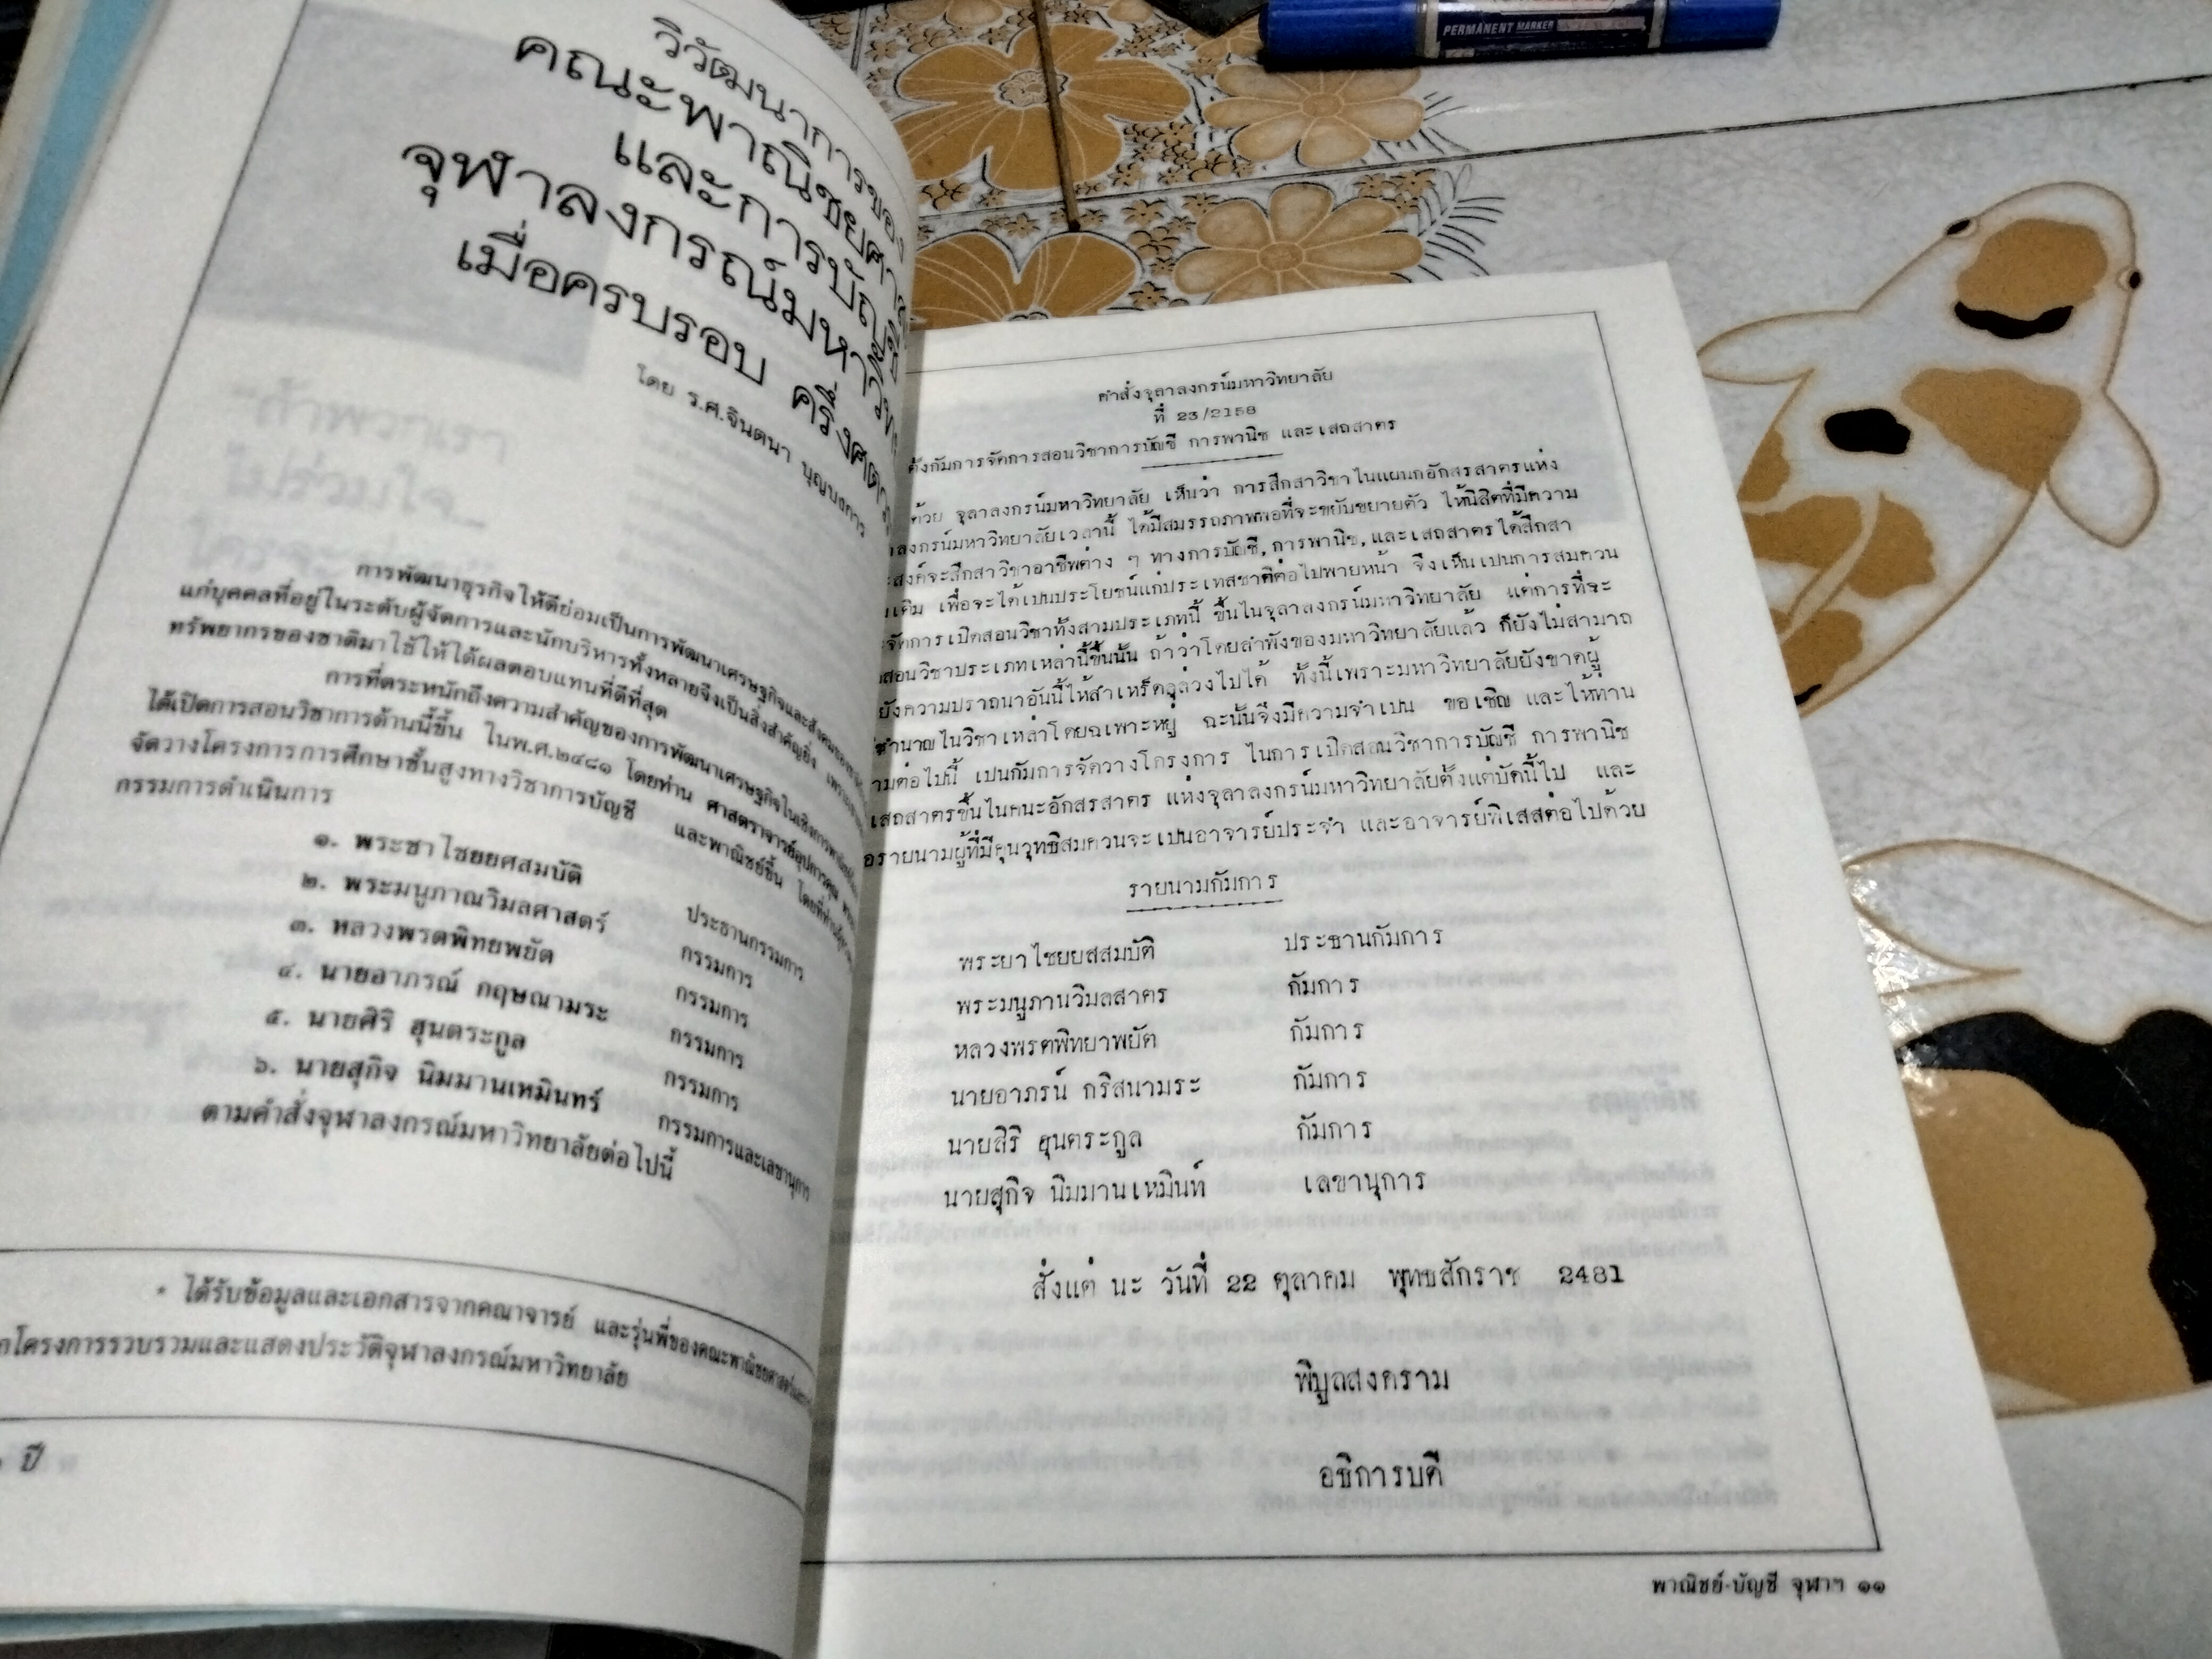 PERMANENT MARKER
วิวัฒนาการของ
คณะพาณิชยศาส
และการบัญชี
จุฬาลงกรณ์มหาวิท
เมื่อครบรอบ ครึ่งศตว
โดย ร.ศ.จินตนา บุญบงการ
การพัฒนาธุรกิจให้ดีย่อมเป็นการพัฒนาเศรษฐกิจและสังคมของ
แก่บุคคลที่อยู่ในระดับผู้จัดการและนักบริหารทั้งหลายจึงเป็นสิ่งสำคัญยิ่ง เพราะ
ทรัพยากรของชาติมาใช้ให้ได้ผลตอบแทนที่ดีที่สุด
การที่ตระหนักถึงความสำคัญของการพัฒนาเศรษฐกิจในเชิงการพาณิชย์
ได้เปิดการสอนวิชาการด้านนี้ขึ้น ในพ.ศ.๒๔๘๑ โดยท่าน ศาสตราจารย์อุปการคุณ
จัดวางโครงการการศึกษาชั้นสูงทางวิชาการบัญชี และพาณิชย์ขึ้น โดยที่ท่าน
กรรมการดำเนินการ
๑. พระยาไชยยศสมบัติ ประธานกรรมการ
๒. พระมนูภาณวิมลศาสตร์ กรรมการ
๓. หลวงพรตพิทยพยัต กรรมการ
๔. นายอาภรณ์ กฤษณามระ กรรมการ
๕. นายศิริ ฮุนตระกูล กรรมการ
๖. นายสุกิจ นิมมานเหมินทร์ กรรมการและเลขานุการ
ตามคำสั่งจุฬาลงกรณ์มหาวิทยาลัยต่อไปนี้
* ได้รับข้อมูลและเอกสารจากคณาจารย์ และรุ่นพี่ของคณะพาณิชยศาสตร์
กโครงการรวบรวมและแสดงประวัติจุฬาลงกรณ์มหาวิทยาลัย
ปี
คำสั่งจุลาลงกรน์มหาวิทยาลัย
ที่ 23/2158
ตั้งกัมการจัดการสอนวิชาการบัญชี การพานิช และเสถสาตร
ด้วย จุลาลงกรน์มหาวิทยาลัย เห็นว่า การสึกสาวิชาในแผนกอักสรสาตรแห่ง
าลงกรน์มหาวิทยาลัยเวลานี้ ได้มีสมรรถภาพพอที่จะขยับขยายตัว ให้นิสิตที่มีความ
ะสงค์จะสึกสาวิชาอาชีพต่าง ๆ ทางการบัญชี, การพานิช, และเสถสาตรได้สึกสา
มเติม เพื่อจะได้เปนประโยชน์แก่ประเทสชาติต่อไปพายหน้า จึงเห็นเปนการสมควน
ะจัดการเปิดสอนวิชาทั้งสามประเภทนี้ ขึ้นในจุลาลงกรน์มหาวิทยาลัย แต่การที่จะ
สอนวิชาประเภทเหล่านี้ขึ้นนั้น ถ้าว่าโดยลำพังของมหาวิทยาลัยแล้ว ก็ยังไม่สามาถ
ยังความปราถนาอันนี้ให้สำเหร็ดลุล่วงไปได้ ทั้งนี้เพราะมหาวิทยาลัยยังขาดผู้
ชำนาญในวิชาเหล่าโดยฉเพาะหยู่ ฉะนั้นจึงมีความจำเปน ขอเชิญ และไห้ท่าน
ามต่อไปนี้ เปนกัมการจัดวางโครงการ ในการเปิดสอนวิชาการบัญชี การพานิช
เสถสาตรขึ้นในคนะอักสรสาตร แห่งจุลาลงกรน์มหาวิทยาลัยตั้งแต่บัดนี้ไป และ
อรายนามผู้ที่มีคุนวุทธิสมควนจะเปนอาจารย์ประจำ และอาจารย์พิเสสต่อไปด้วย
รายนามกัมการ
พระยาไชยยสสมบัติ ประธานกัมการ
พระมนูภานวิมลสาตร กัมการ
หลวงพรตพิทยาพยัต กัมการ
นายอาภรน์ กริสนามระ กัมการ
นายสิริ ฮุนตระกูล กัมการ
นายสุกิจ นิมมานเหมินท์ เลขานุการ
สั่งแต่ นะ วันที่ 22 ตุลาคม พุทธสักราช 2481
พิบูลสงคราม
อธิการบดี
พาณิชย์-บัญชี จุฬาฯ ๑๑